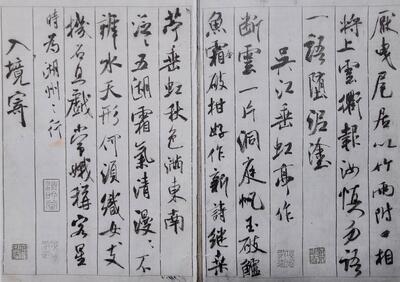 厭曳尾居以竹兩附口相
將上雲衢報汝慎勿語
一語墮泥塗
吳江垂虹亭作
斷雲一片洞庭帆玉破鱸
魚霜破柑好作新詩繼桑
苧垂虹秋色滿東南
泛泛五湖霜氣清漫漫不
辨水天形何須織女支
機石且戲常娥稱客星
時為湖州之行
入境寄